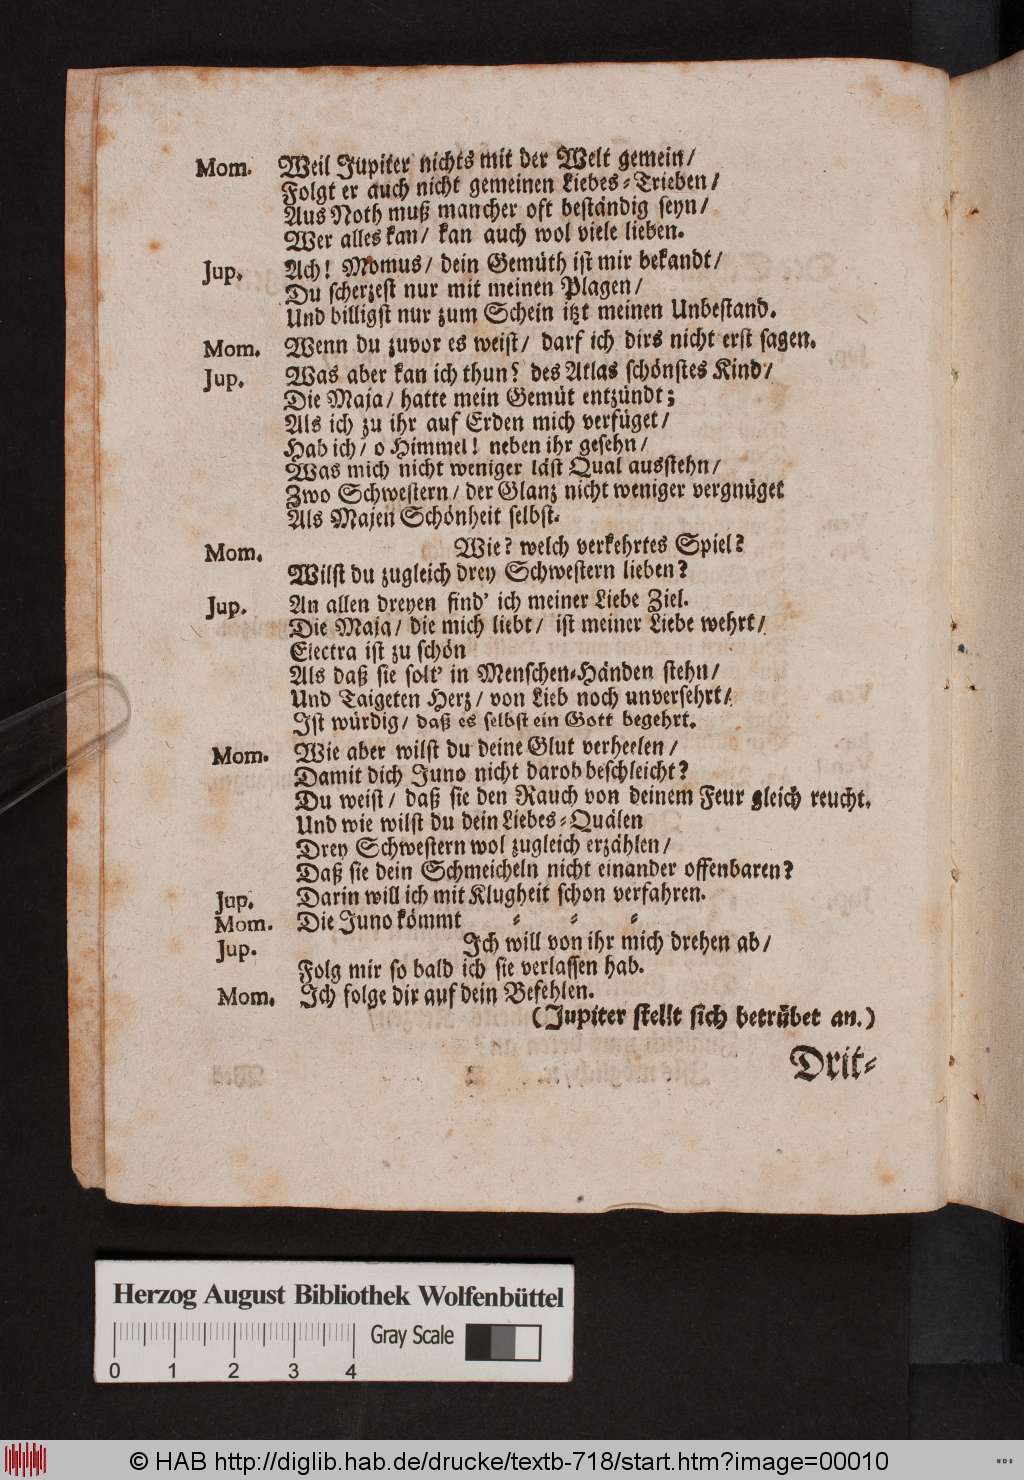 Mom. Weil Jupiter nichts mit der Welt gemein/
Folgt er auch nicht gemeinen Liebes-Trieben/
Aus Noth muß mancher oft beständig seyn/
Wer alles kan/ kan auch wol viele lieben.
Jup. Ach! Momus/ dein Gemüth ist mir bekandt/
Du scherzest nur mit meinen Plagen/
Und billigst nur zum Schein itzt meinen Unbestand.
Mom. Wenn du zuvor es weist/ darf ich dirs nicht erst sagen.
Jup. Was aber kan ich thun? des Atlas schönstes Kind/
Die Maja/ hatte mein Gemüt entzündt;
Als ich zu ihr auf Erden mich verfüget/
Hab ich/ o Himmel! neben ihr gesehn/
Was mich nicht weniger läst Qual ausstehn/
Zwo Schwestern/ der Glanz nicht weniger vergnüget
Als Majen Schönheit selbst.
Mom. Wie? welch verkehrtes Spiel?
Wilst du zugleich drey Schwestern lieben?
Jup. An allen dreyen find' ich meiner Liebe Ziel.
Die Maja/ die mich liebt/ ist meiner Liebe wehrt/
Electra ist zu schön
Als daß sie solt' in Menschen-Händen stehn/
Und Taigeten Herz/ von Lieb noch unversehrt/
Ist würdig/ daß es selbst ein Gott begehrt.
Mom. Wie aber wilst du deine Glut verheelen/
Damit dich Juno nicht darob beschleicht?
Du weist/ daß sie den Rauch von deinem Feur gleich reucht.
Und wie wilst du dein Liebes-Quälen
Drey Schwestern wol zugleich erzählen/
Daß sie dein Schmeicheln nicht einander offenbaren?
Jup. Darin will ich mit Klugheit schon verfahren.
Mom. Die Juno kömmt - - -
Jup. Ich will von ihr mich drehen ab/
Folg mir so bald ich sie verlassen hab.
Mom. Ich folge dir auf dein Befehlen.
(Jupiter stellt sich betrübet an.)
Drit-
Herzog August Bibliothek Wolfenbüttel
Gray Scale
0 1 2 3 4
© HAB http://diglib.hab.de/drucke/textb-718/start.htm?image=00010